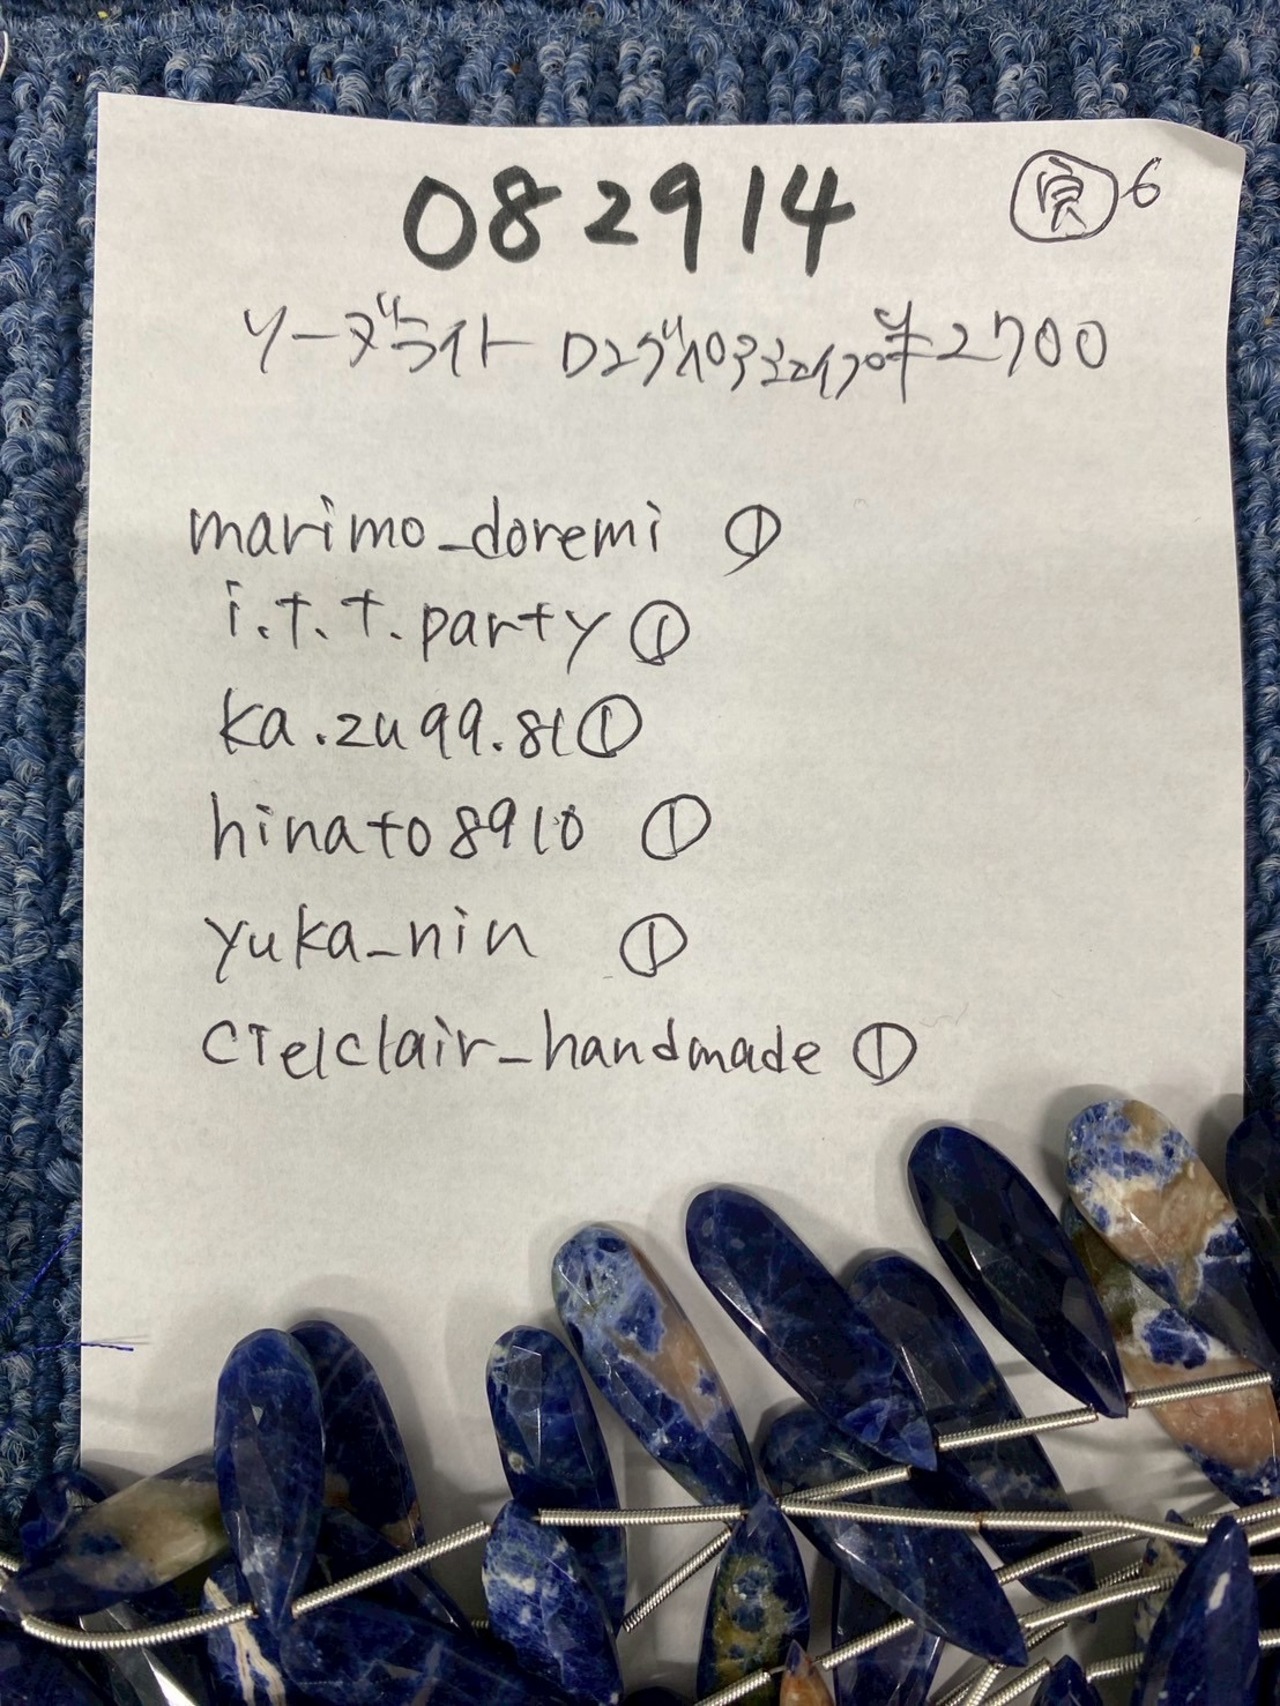 082914 6
ソーダライト ロングペアシェイプ ¥2700
marimo_doremi ①
i.t.t.party ①
ka.zu99.81 ①
hinato8910 ①
yuka_nin ①
cielclair_handmade ①